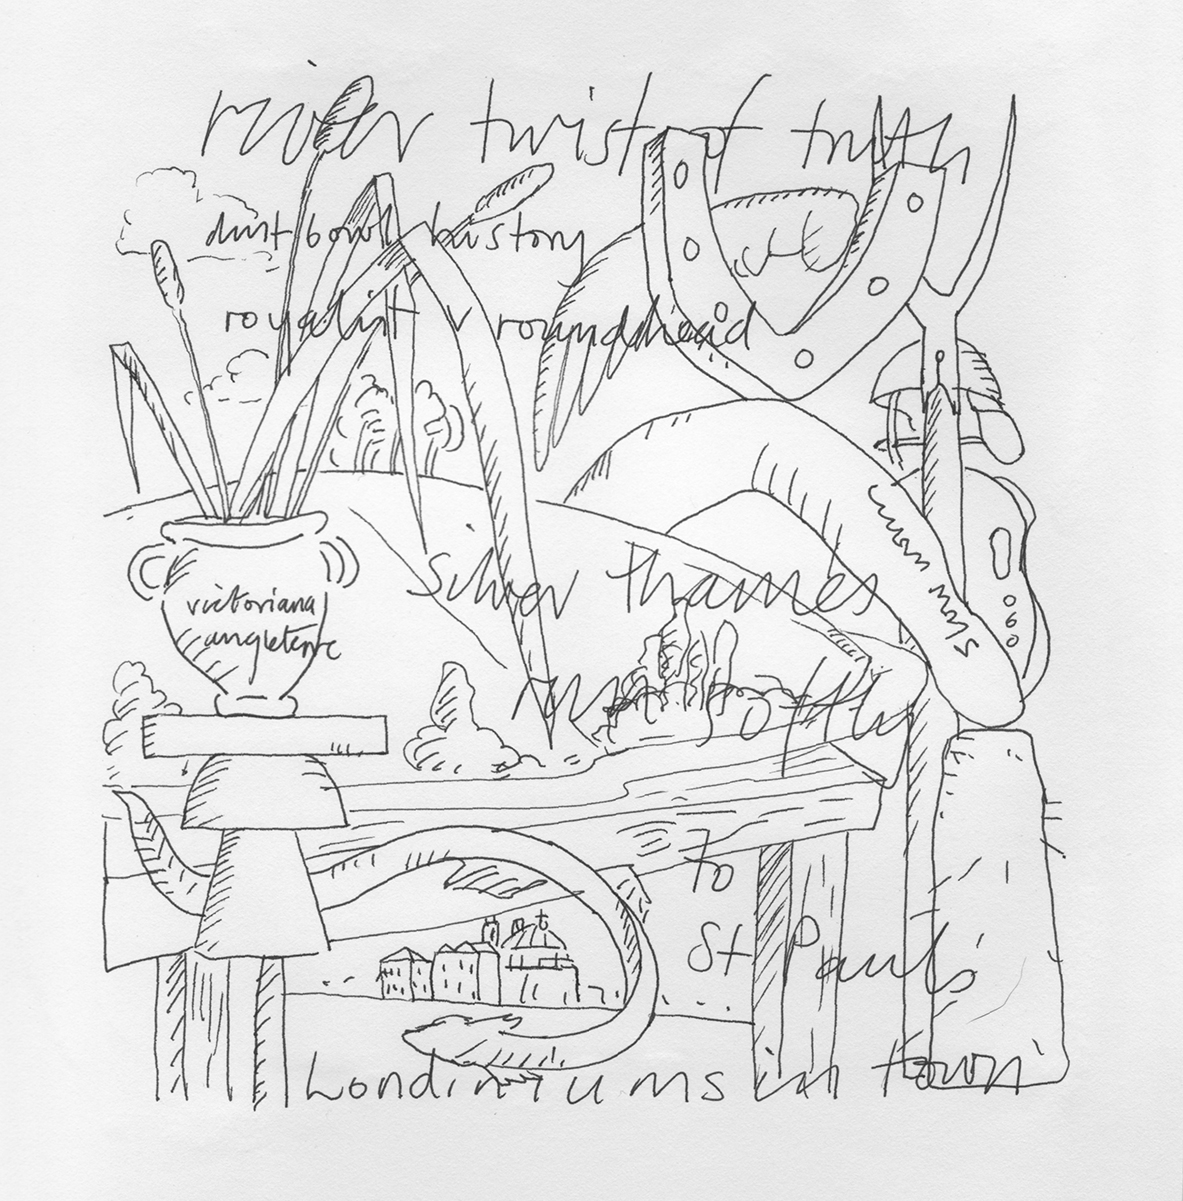 river twist of truth
dust bowl history
royalist v roundhead
Silver Thames
victoriana
angleterre
run softly
to
St Paul's
Londiniums in town